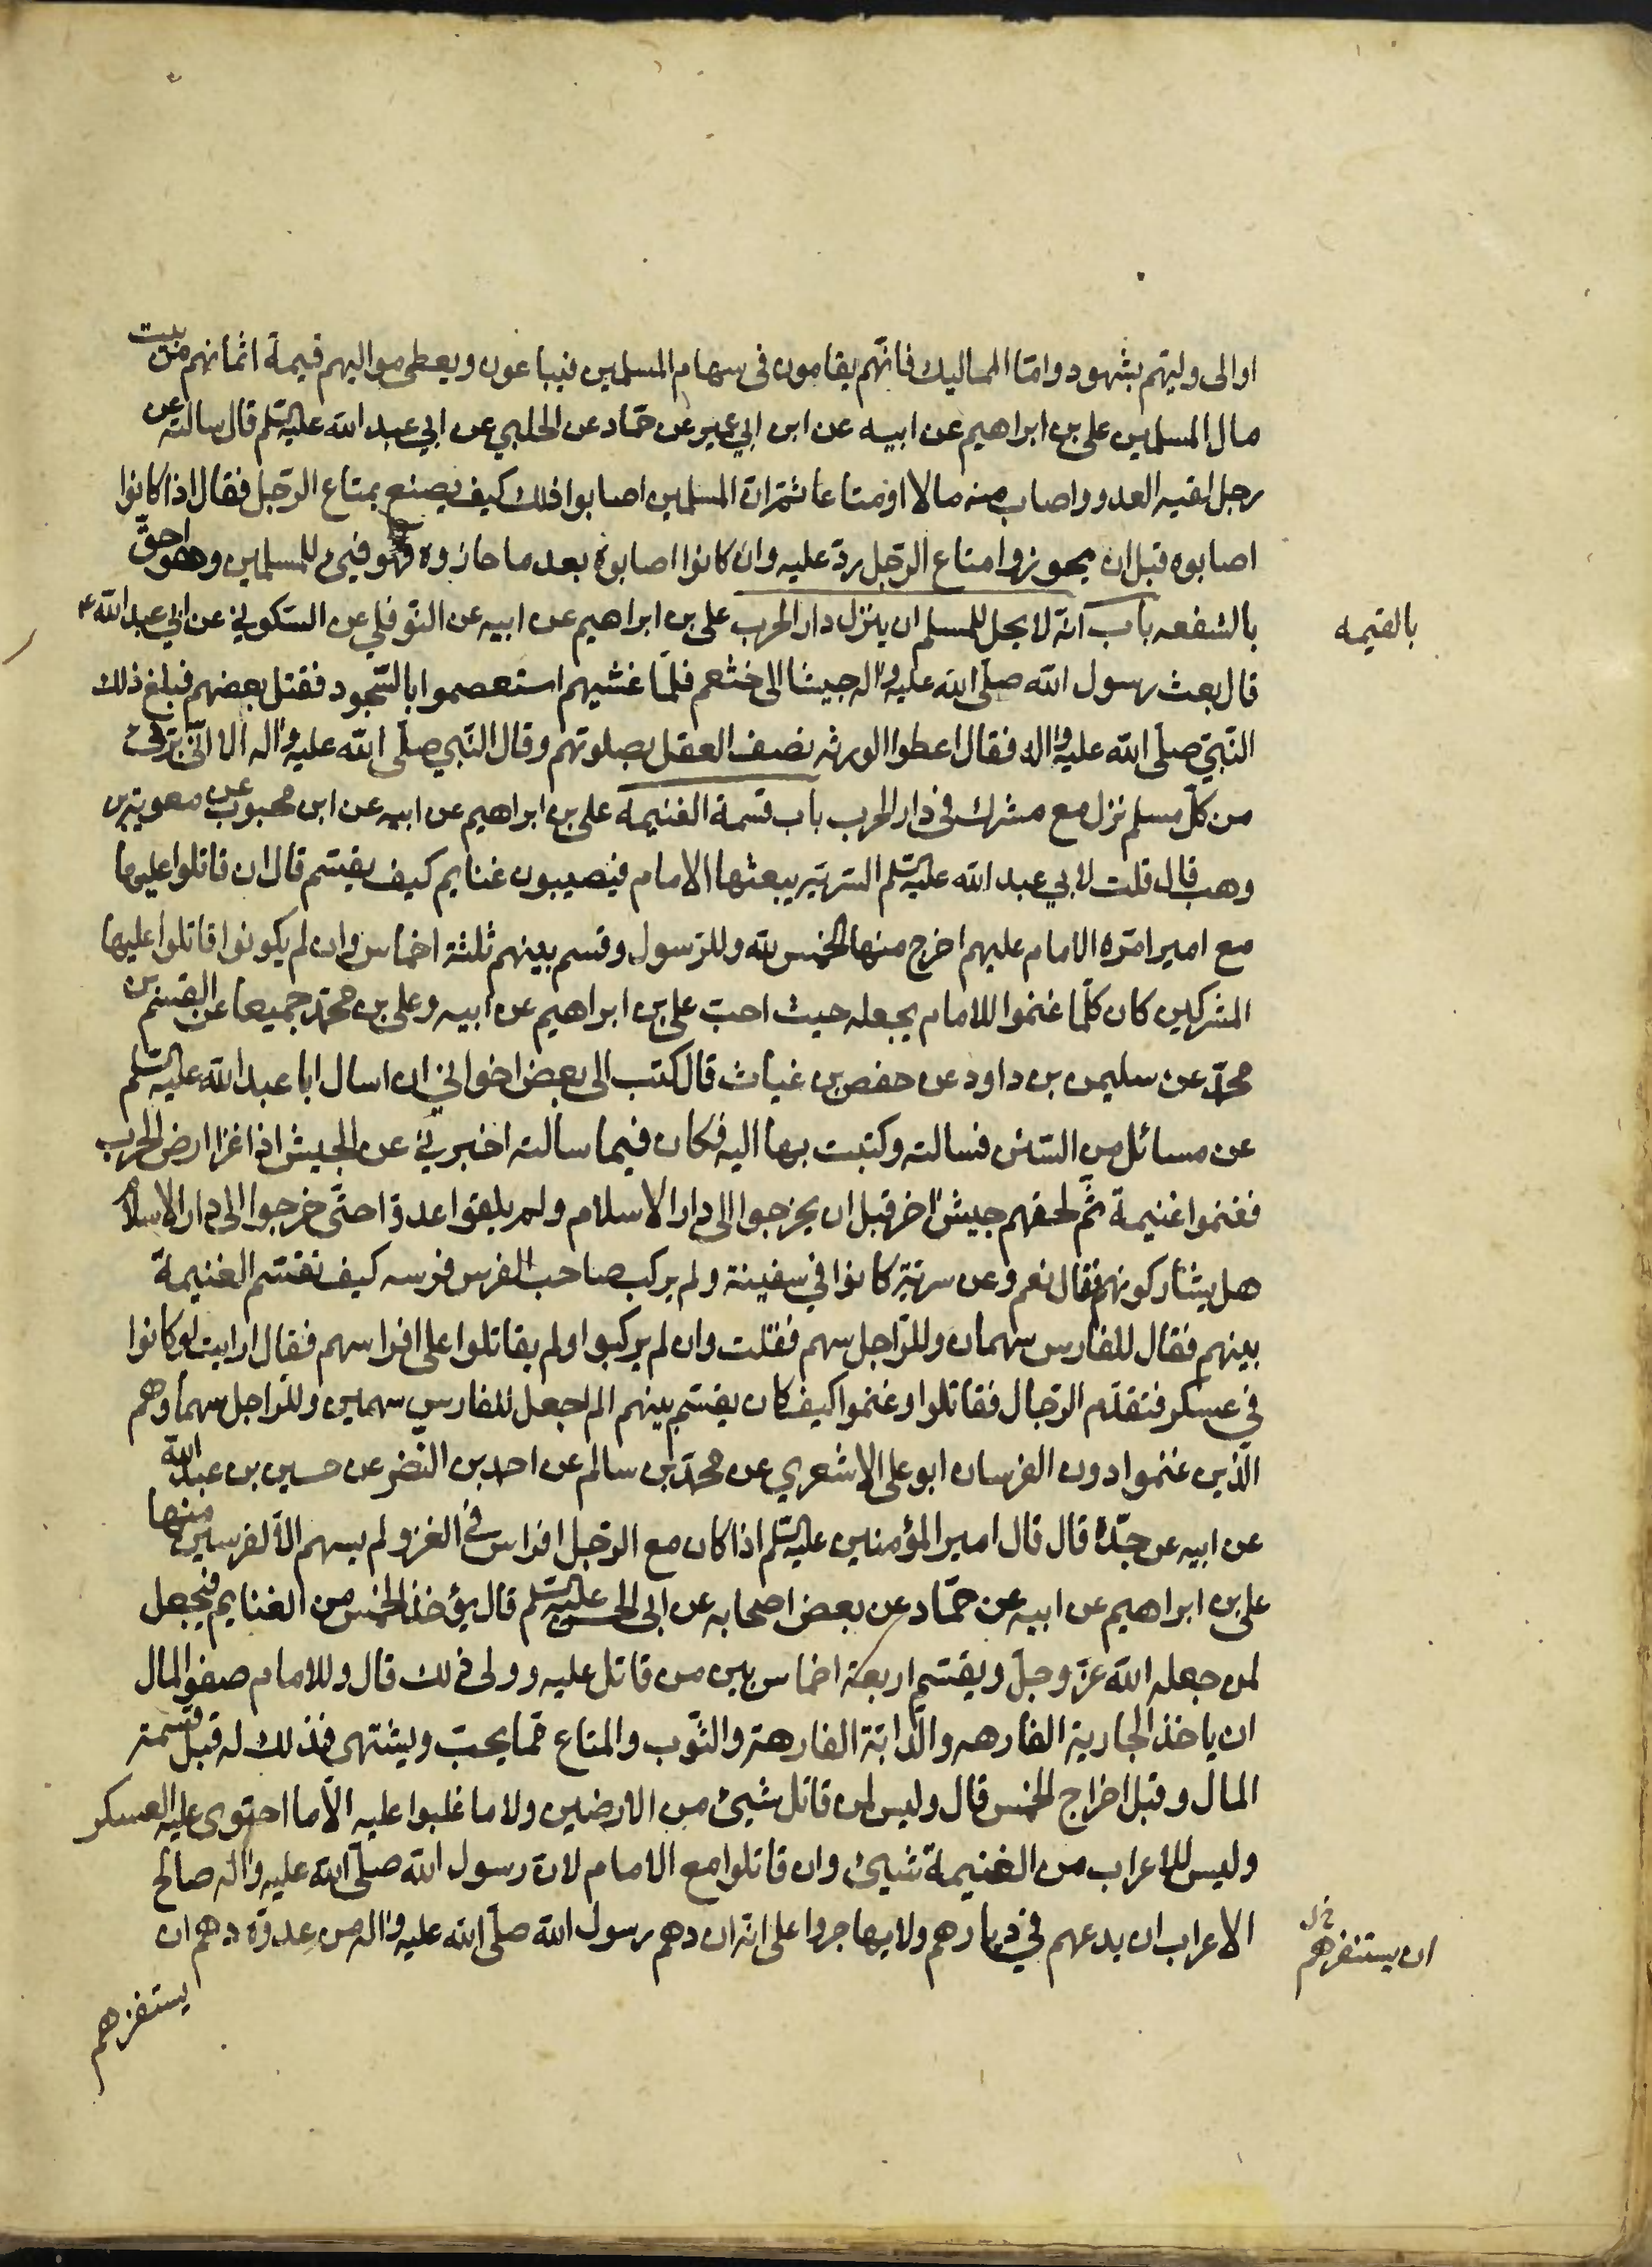 او الى وليّهم بشهود وامّا المماليك فانّهم يقامون فى سهام المسلمين فيباعون ويعطى مواليهم قيمة اثمانهم من بيت
مال المسلمين على بن ابراهيم عن ابيه عن ابن ابي عمير عن حمّاد عن الحلبي عن ابي عبد الله عليه السّلم قال سالته عن
رجل لقيه العدو واصاب منه مالا او متاعا ثمّ انّ المسلمين اصابوا ذلك كيف يصنع بمتاع الرّجل فقال اذا كانوا
اصابوه قبل ان يحوزوا متاع الرّجل ردّ عليه وان كانوا اصابوه بعد ما حازوه فهو فيىء للمسلمين وهو احقّ
بالشفعه باب انّه لا يحل للمسلم ان ينزل دار الحرب على بن ابراهيم عن ابيه عن النّوفلي عن السّكوني عن ابي عبد الله ع
بالقيمه
قال بعث رسول الله صلّى الله عليه واله جيشا الى خثعم فلمّا غشيهم استعصموا بالسّجود فقتل بعضهم فبلغ ذلك
النّبيّ صلّى الله عليه واله فقال اعطوا الورثه نصف العقل بصلوتهم وقال النّبي صلّى الله عليه واله الا انّى برىء
من كلّ مسلم نزل مع مشرك في دار الحرب باب قسمة الغنيمه على بن ابراهيم عن ابيه عن ابن محبوب عن معوية بن
وهب قال قلت لابي عبد الله عليه السّلم السّريّه يبعثها الامام فيصيبون غنايم كيف يقسّم قال ان قاتلوا عليها
مع امير امّره الامام عليهم اخرج منها الخمس لله وللرّسول وقسم بينهم ثلثة اخماس وان لم يكونوا قاتلوا عليها
المشركين كان كلّما غنموا للامام يجعله حيث احبّ على بن ابراهيم عن ابيه وعلى بن محمّد جميعا عن القسم بن
محمّد عن سليمن بن داود عن حفص بن غياث قال كتب الى بعض اخواني ان اسال ابا عبد الله عليه السّلم
عن مسائل من السّنن فسالته وكتبت بها اليه فكان فيما سالته اخبرني عن الجيش اذا غزا ارض الحرب
فغنموا غنيمة ثمّ لحقهم جيش اخر قبل ان يخرجوا الى دار الاسلام ولم يلقوا عدوّا حتّى خرجوا الى دار الاسلام
هل يشاركونهم فقال نعم وعن سريّة كانوا في سفينة ولم يركب صاحب الفرس فرسه كيف تقسّم الغنيمة
بينهم فقال للفارس سهمان وللرّاجل سهم فقلت وان لم يركبوا ولم يقاتلوا على افراسهم فقال ارايت لو كانوا
في عسكر فتقدّم الرّجال فقاتلوا وغنموا كيف كان يقسّم بينهم الم اجعل للفارس سهمين وللرّاجل سهما وهم
الّذين غنموا دون الفرسان ابو على الاشعري عن محمّد بن سالم عن احمد بن النّضر عن حسين بن عبد الله
عن ابيه عن جدّه قال قال امير المؤمنين عليه السّلم اذا كان مع الرّجل افراس في الغزو لم يسهم الّا لفرسين منها
على بن ابراهيم عن ابيه عن حمّاد عن بعض اصحابه عن ابى الحسن عليه السّلم قال يؤخذ الخمس من الغنايم فيجعل
لمن جعله الله عزّ وجلّ ويقسّم اربعة اخماس بين من قاتل عليه وولى ذلك قال وللامام صفو المال
ان ياخذ الجارية الفارهه والدّابّة الفارهة والثّوب والمتاع ممّا يحبّ ويشتهى فذلك له قبل قسمة
المال وقبل اخراج الخمس قال وليس لمن قاتل شيئ من الارضين ولا ما غلبوا عليه الّا ما احتوى عليه العسكر
وليس للاعراب من الغنيمة شيئ وان قاتلوا مع الامام لانّ رسول الله صلّى الله عليه واله صالح
الاعراب ان يدعهم في ديارهم ولا يهاجروا على انّه ان دهم رسول الله صلّى الله عليه واله من عدوّه دهم ان
ان يستنفرهم
يستفزهم